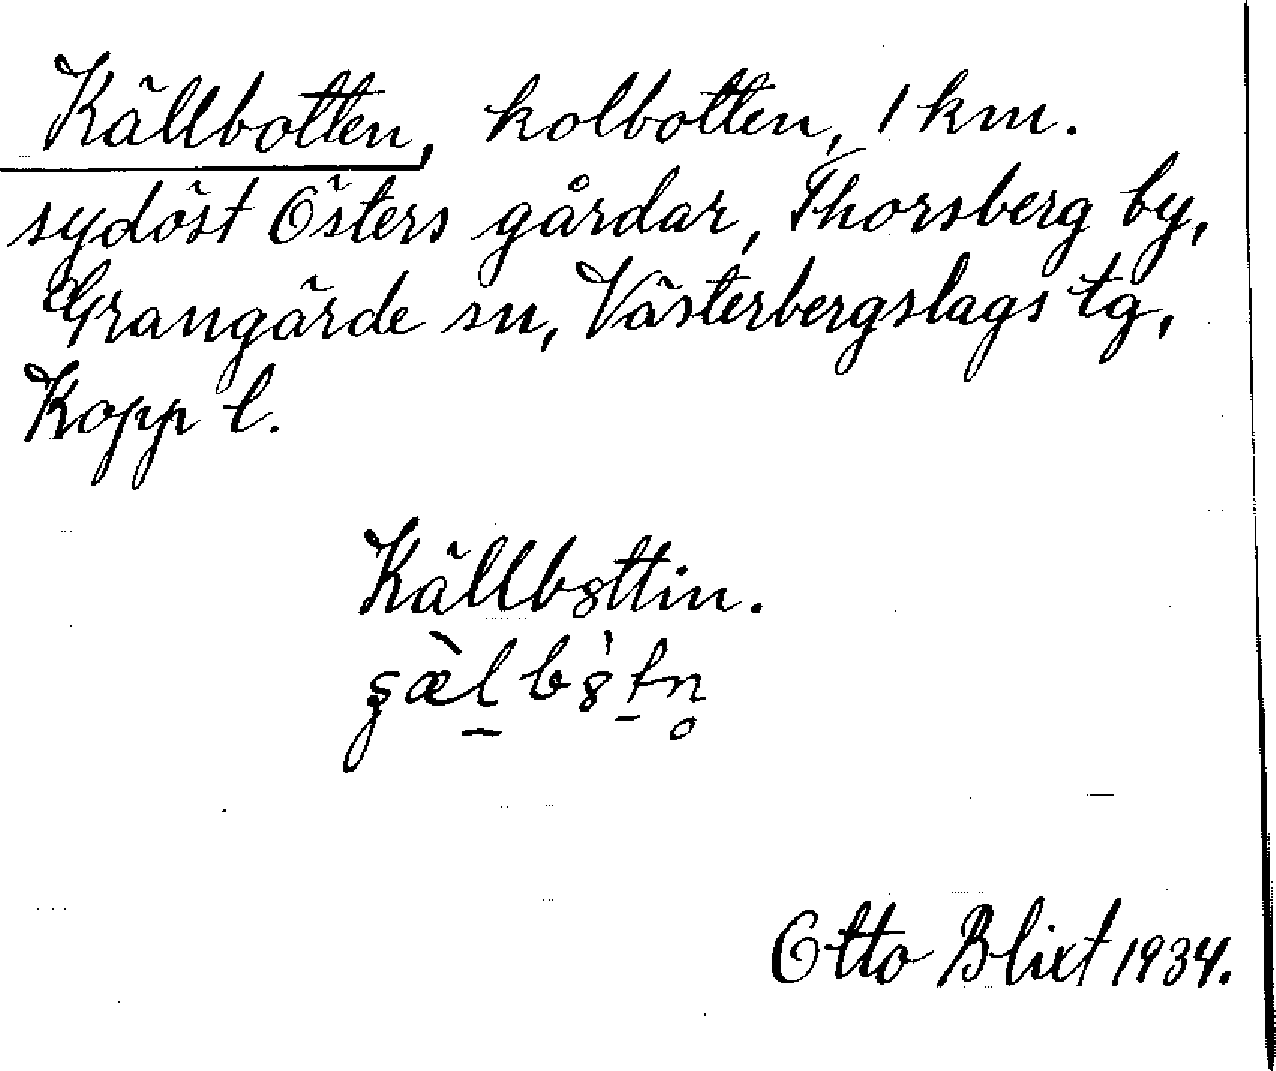 Källbotten, kolbotten, 1 km.
sydöst Östers gårdar, Thorsberg by,
Grangärde sn, Västerbergslags tg,
Kopp l.
Källbȣttin.
Otto Blixt 1934.